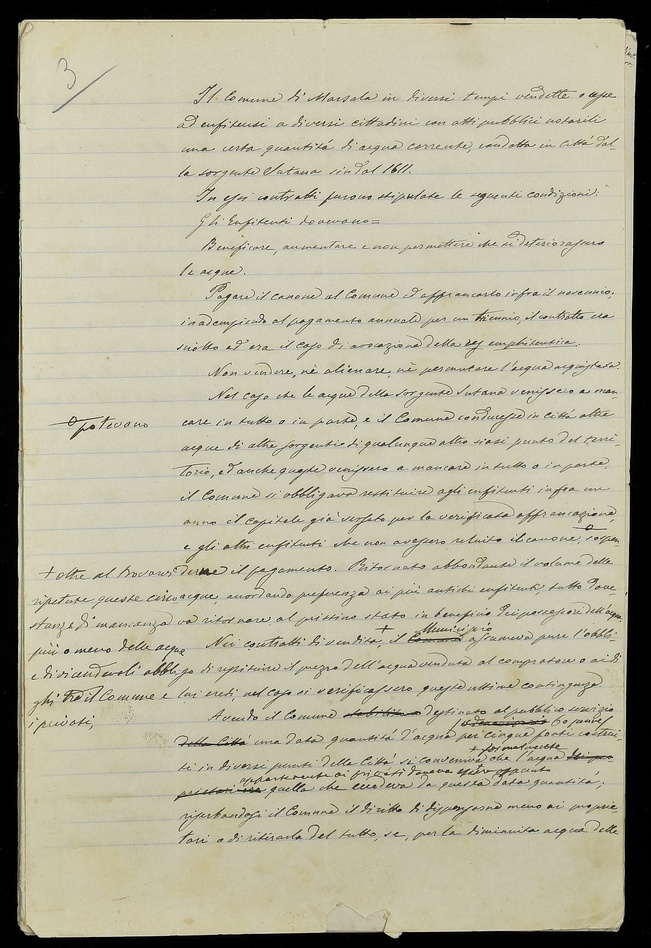 3
Il Comune di Marsala in diversi tempi vendette o cesse
ad enfiteusi a diversi cittadini con atti pubblici notarili
una certa quantità di acqua corrente, condotta in Città dal-
la sorgente Sutana sin dal 1611.
In essi contratti furono stipulate le seguenti condizioni:
Gli Enfiteuti dovevano=
Beneficare, aumentare e non permettere che si deteriorassero
le acque.
Pagare il canone al Comune ed affrancarlo infra il novennio;
inadempiendo al pagamento annuale per un triennio, il contratto era
sciolto ed era il caso di avocazione della rej emphiteutica.
Non vendere, nè alienare, nè permutare l'acqua acquistata.
Nel caso che le acque della sorgente Sutana venissero a man-
care in tutto o in parte, e il Comune conducesse in Città altre
acque di altre sorgenti e di qualunque altro siasi punto del terri-
torio, ed anche queste venissero a mancare in tutto o in parte,
il Comune si obbligava restituire agli enfiteuti infra un
anno il capitale già versato per la verificata affrancazione,
e gli altri enfiteuti che non avessero reluito il canone, sospen-
potevano
dere il pagamento. Ritornato abbondante il volume delle
ripetute acque, accordando preferenza ai più antichi enfiteuti, tutto dove
va ritornare al pristino stato in beneficio dei possessori dell'acqua.
Nei contratti di vendita, + il Municipio assumeva pure l'obbli-
go di restituire il prezzo dell'acqua venduta al compratore o ai di
lui eredi, nel caso si verificassero queste ultime contingenze
+ oltre al trovarsi
queste circo
stanze di mancanza
più o meno delle acque
e di vicendevoli obbli
ghi tra il Comune e
i privati,
Avendo il Comune destinato al pubblico servizio
una data quantità d'acqua per cinque fonti costrui-
ti in diversi punti della Città si conveniva + che l'acqua
+ formalmente
appartenente ai privati doveva essere appunto
quella che eccedeva da questa data quantità;
riserbandosi il Comune il diritto di dispensarne meno ai proprie-
tari o di ritirarla del tutto, se, per la diminuita acqua delle